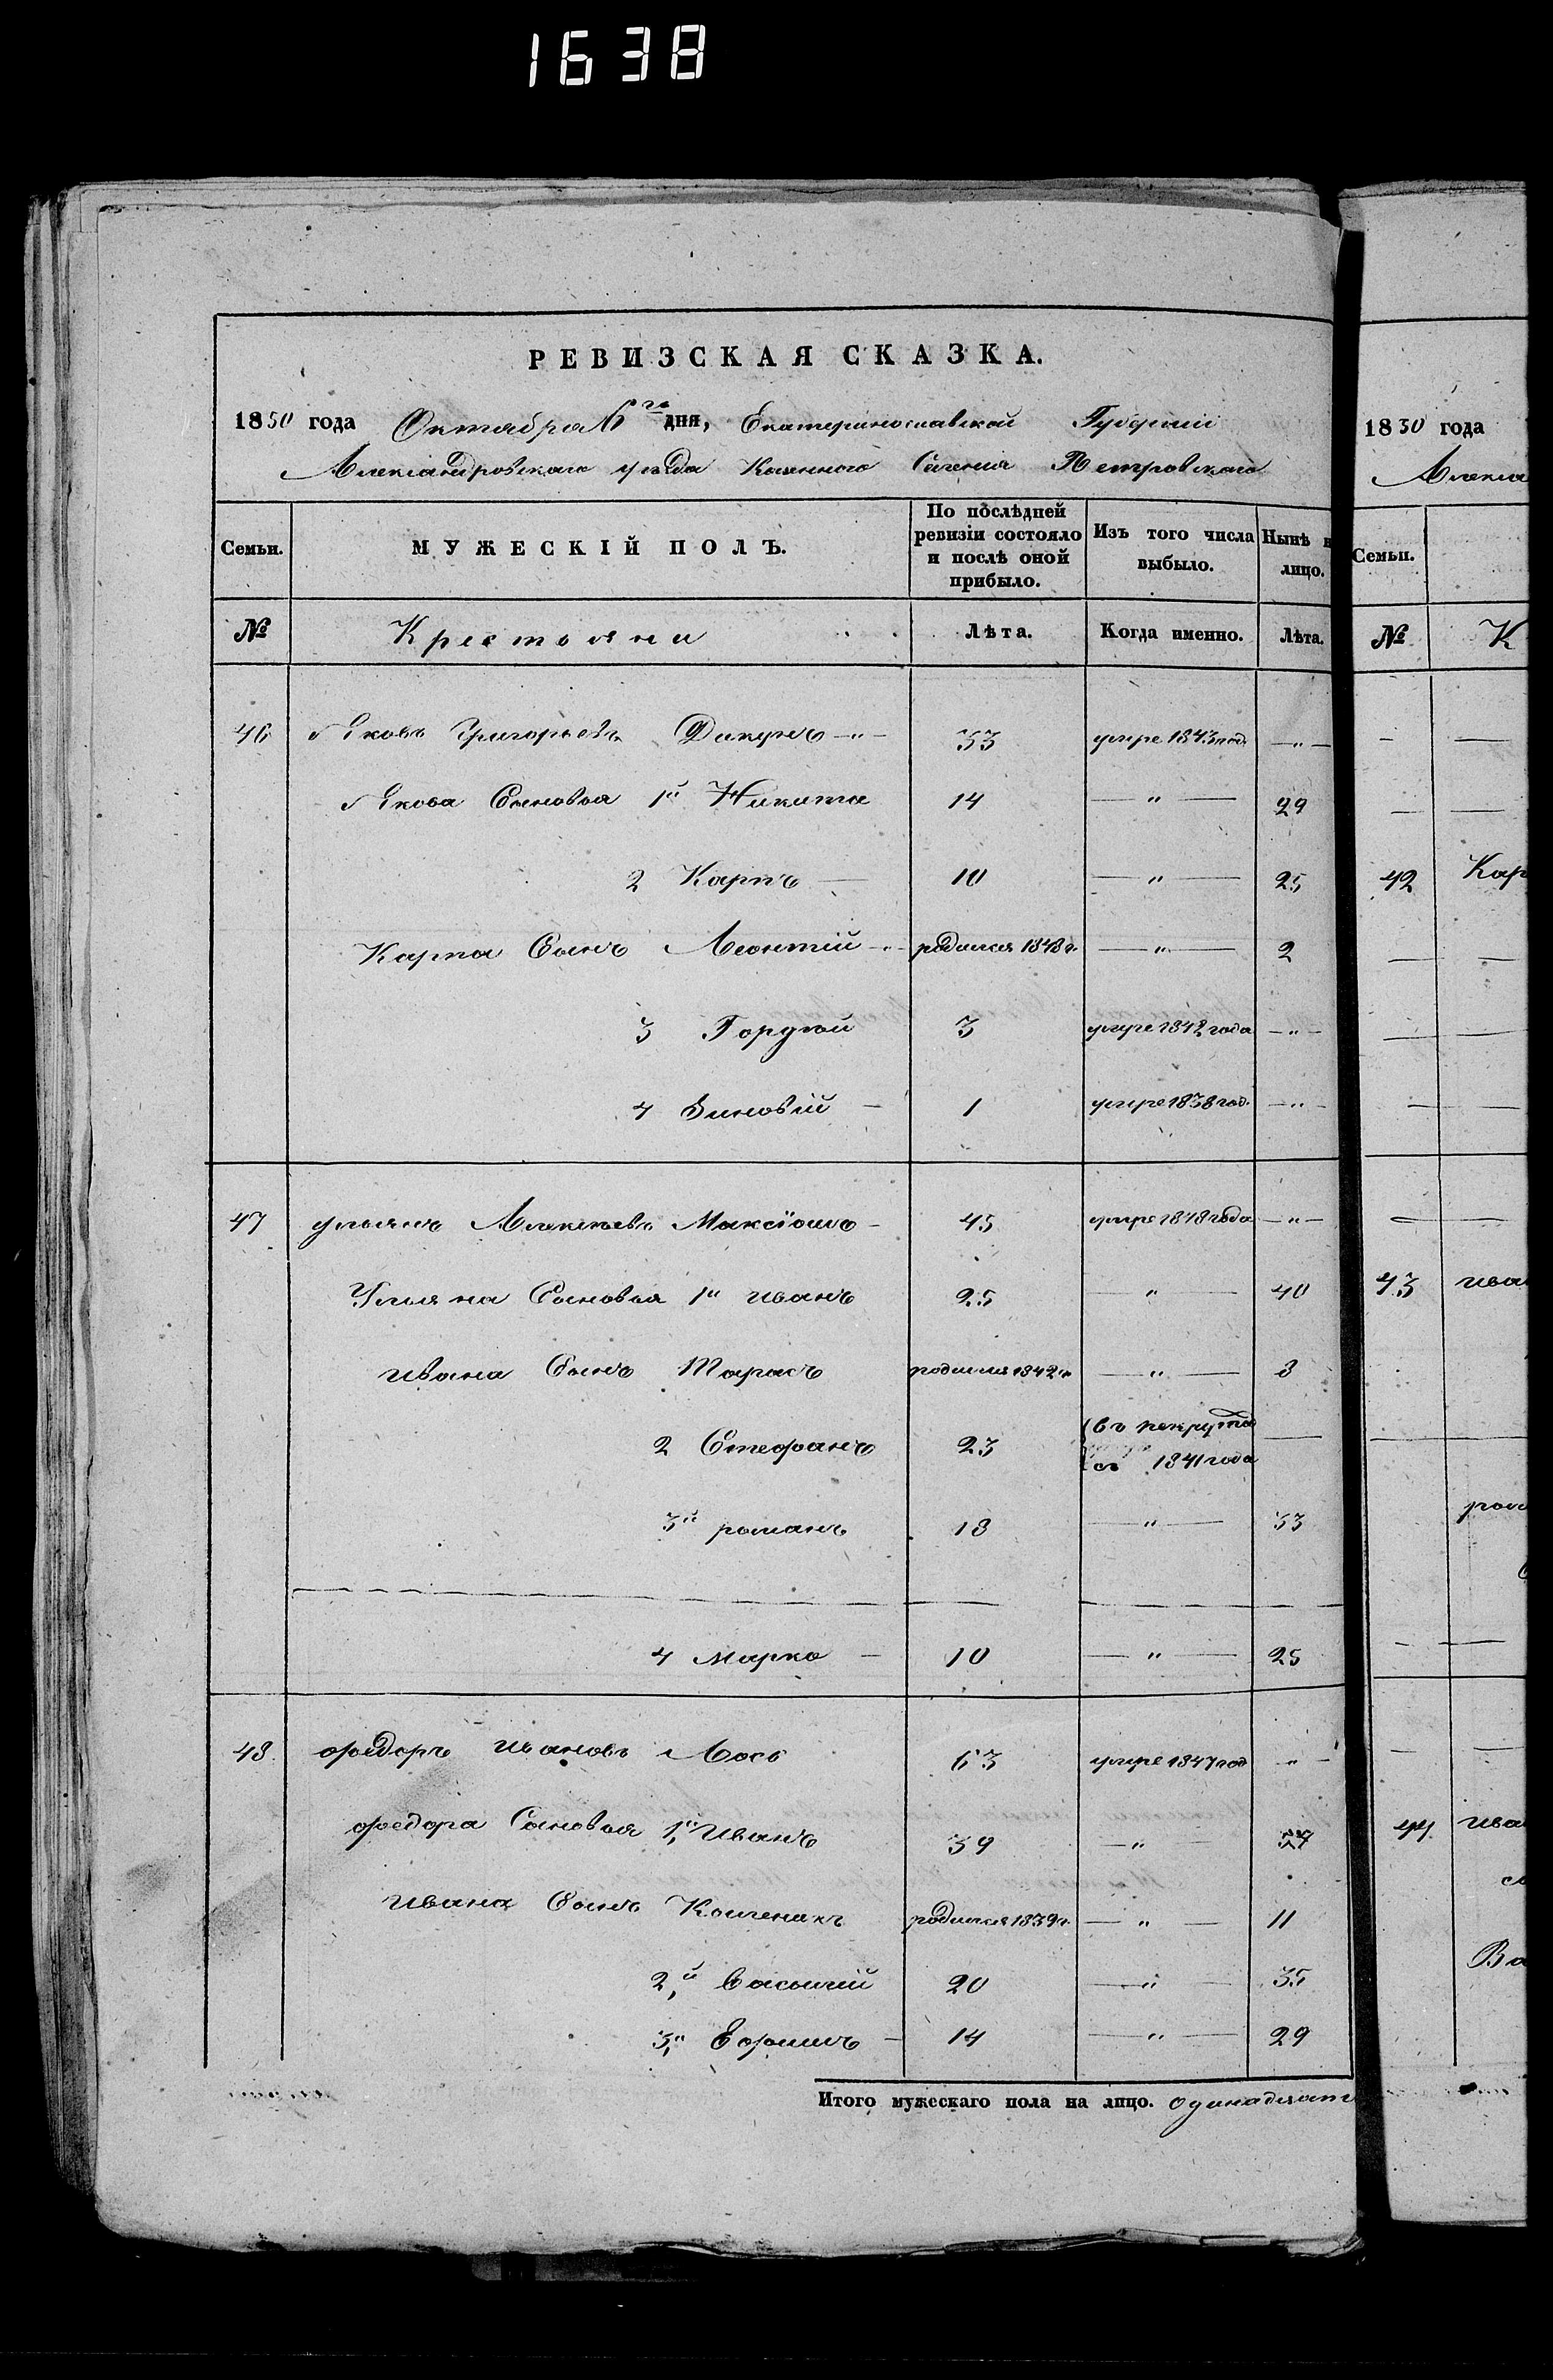 1638
РЕВИЗСКАЯ СКАЗКА.
1850 года Октября 6го дня, Екатеринославской Губерніи
Александровскаго уезда Казенного Селенія Петровскаго
Семьи. МУЖЕСКІЙ ПОЛЪ. По послѣдней ревизіи состояло и послѣ оной прибыло. Изъ того числа выбыло. Нынѣ н лицо.
№ Крестьяни Лѣта. Когда именно. Лѣта.
46 Яковъ Григорьевъ Дикунъ —"— 33 умре 1843 год. —"—
Якова Сыновья 1й Никита 14 —"— 29
2 Карпъ — 10 —"— 25
Карпа Сынъ Леонтій —"— родился 1848 г. —"— 2
3 Гордѣй 3 умре 1842 года —"—
4 Зиновій — 1 умре 1838 год. —"—
47 Ульянъ Алексѣевъ — 45 умре 1848 года —"—
Ульяна Сыновья 1й иванъ 25 —"— 40
ивана Сынъ Тарасъ родился 1842 г. —"— 8
2 Стефанъ 23 въ рекрута
съ 1841 года —
3й романъ 18 —"— 33
4 Марко — 10 —"— 25
48. Федоръ Ивановъ Лось 63 умре 1847 год " —
Федора Сыновья 1й Иванъ 39 —"— 54
Ивана Сынъ родился 1839 г. —"— 11
2й Василій 20 —"— 35
3й Ефимъ — 14 —"— 29
Итого мужескаго пола на лицо. одинадцать
1850 года
Алекса
Семьи.
№ К
42 Кар
43 ива
ром
44. ива
Ва